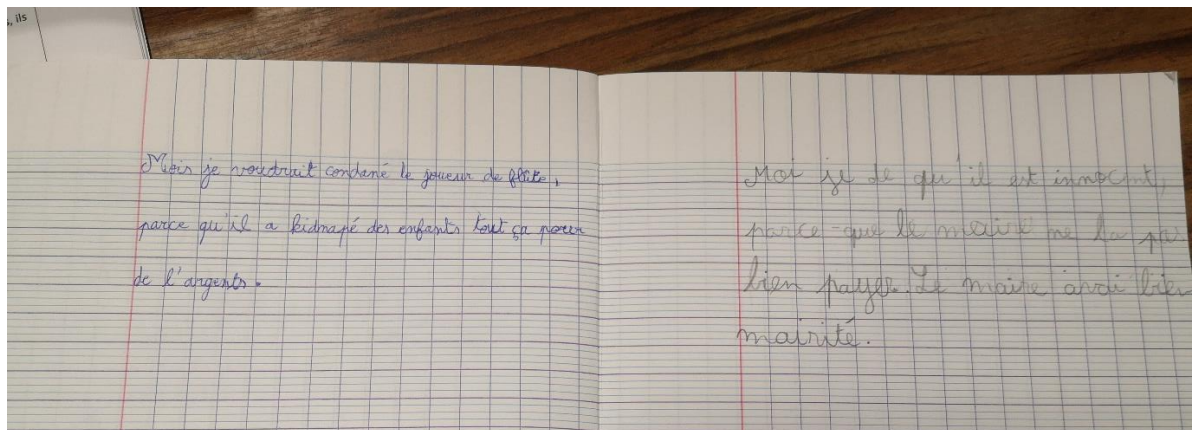 s, ils
Mois je voudrait condané le joueur de flûte,
parce qu'il a kidnapé des enfants tout ça pour
de l'argents.
Moi je de qu'il est innocent,
parce-que le maire ne la pas
bien payer. Le maire avai bien
mairité.